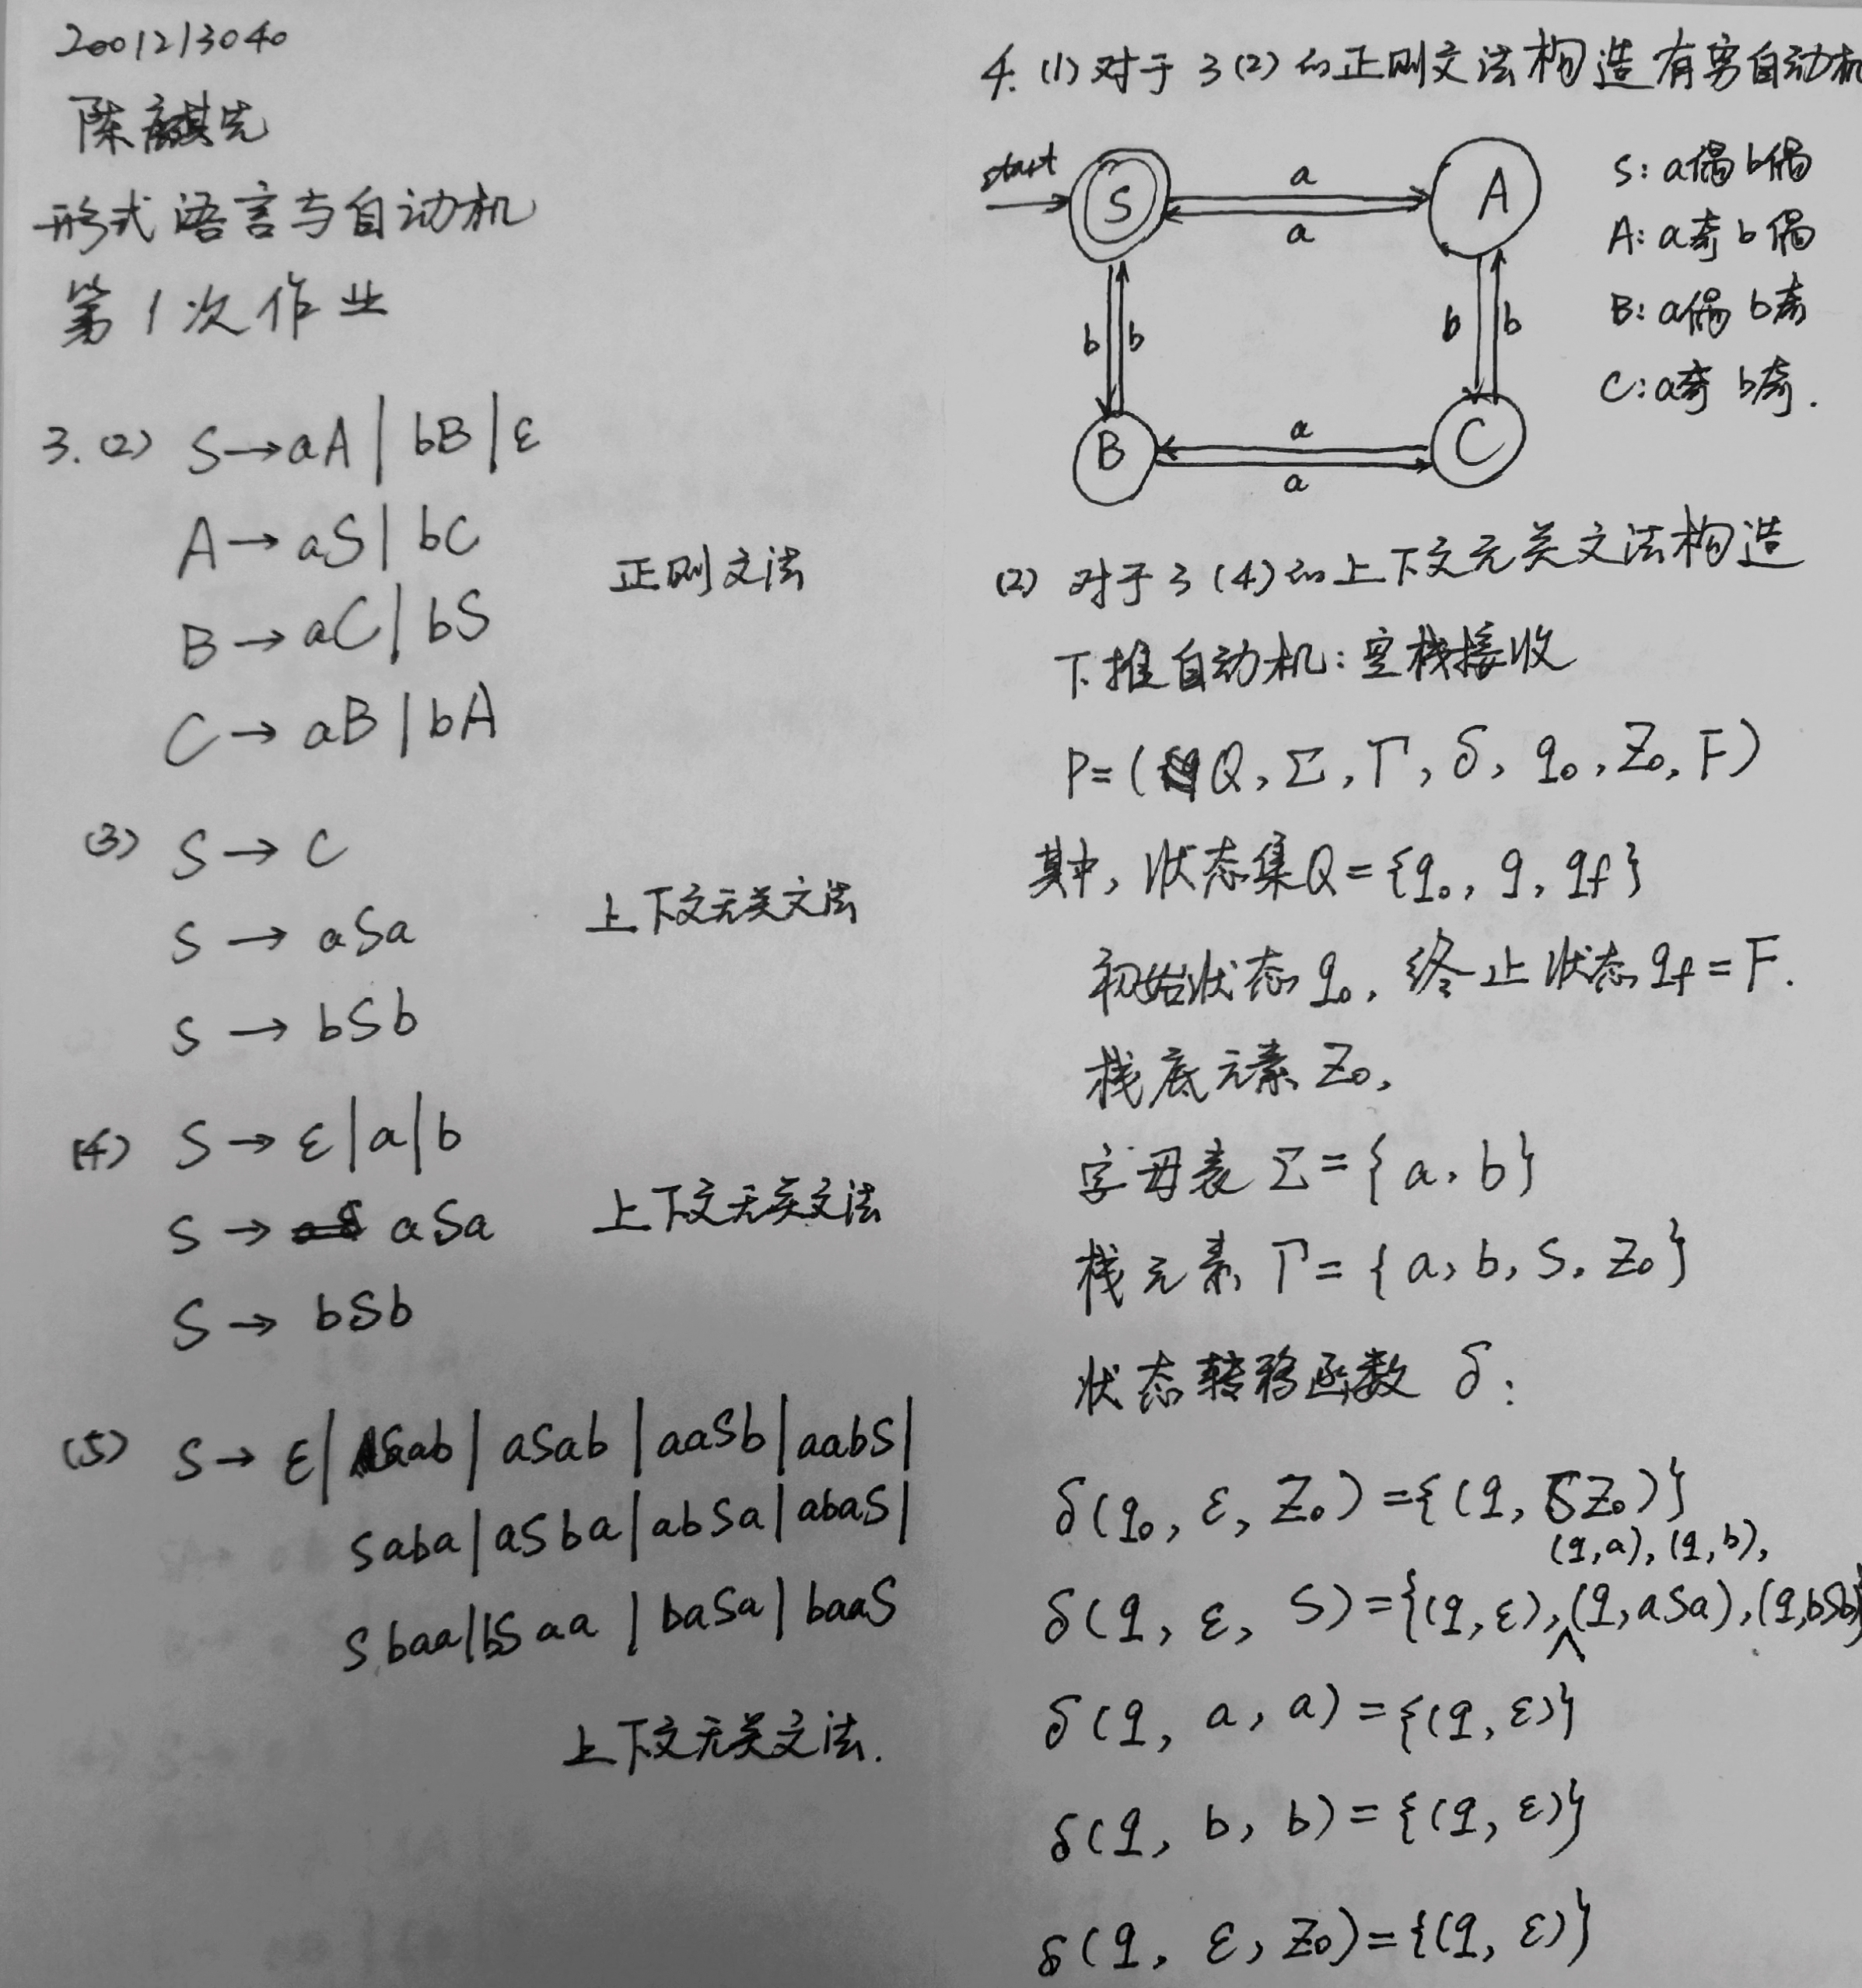 2001213040
陈麒先
形式语言与自动机
第1次作业
3. (2) S→aA | bB | ε
A→ aS | bC
正则文法
B→ aC | bS
C→ aB | bA
(3) S → c
S → aSa
上下文无关文法
S → bSb
(4) S → ε | a | b
S → aSa
上下文无关文法
S → bSb
(5) S → ε | Saab | aSab | aaSb | aabS |
Saba | aSba | abSa | abaS |
Sbaa | bSaa | baSa | baaS
上下文无关文法.
4. (1) 对于 3(2) 的正则文法构造有穷自动机
start
S
a
a
A
b
b
b
b
B
a
a
C
S: a偶 b偶
A: a奇 b偶
B: a偶 b奇
C: a奇 b奇.
(2) 对于 3 (4) 的上下文无关文法构造
下推自动机: 空栈接收
P = (Q, Σ, Γ, δ, q₀, Z₀, F)
其中, 状态集Q = {q₀, q, qf}
初始状态 q₀, 终止状态 qf = F.
栈底元素 Z₀,
字母表 Σ = { a, b}
栈元素 Γ = { a, b, S, Z₀}
状态转移函数 δ:
δ(q₀, ε, Z₀) = {(q, SZ₀)}
(q,a), (q,b),
δ(q, ε, S) = {(q, ε), (q, aSa), (q, bSb)}
δ(q, a, a) = {(q, ε)}
δ(q, b, b) = {(q, ε)}
δ(q, ε, Z₀) = {(q, ε)}